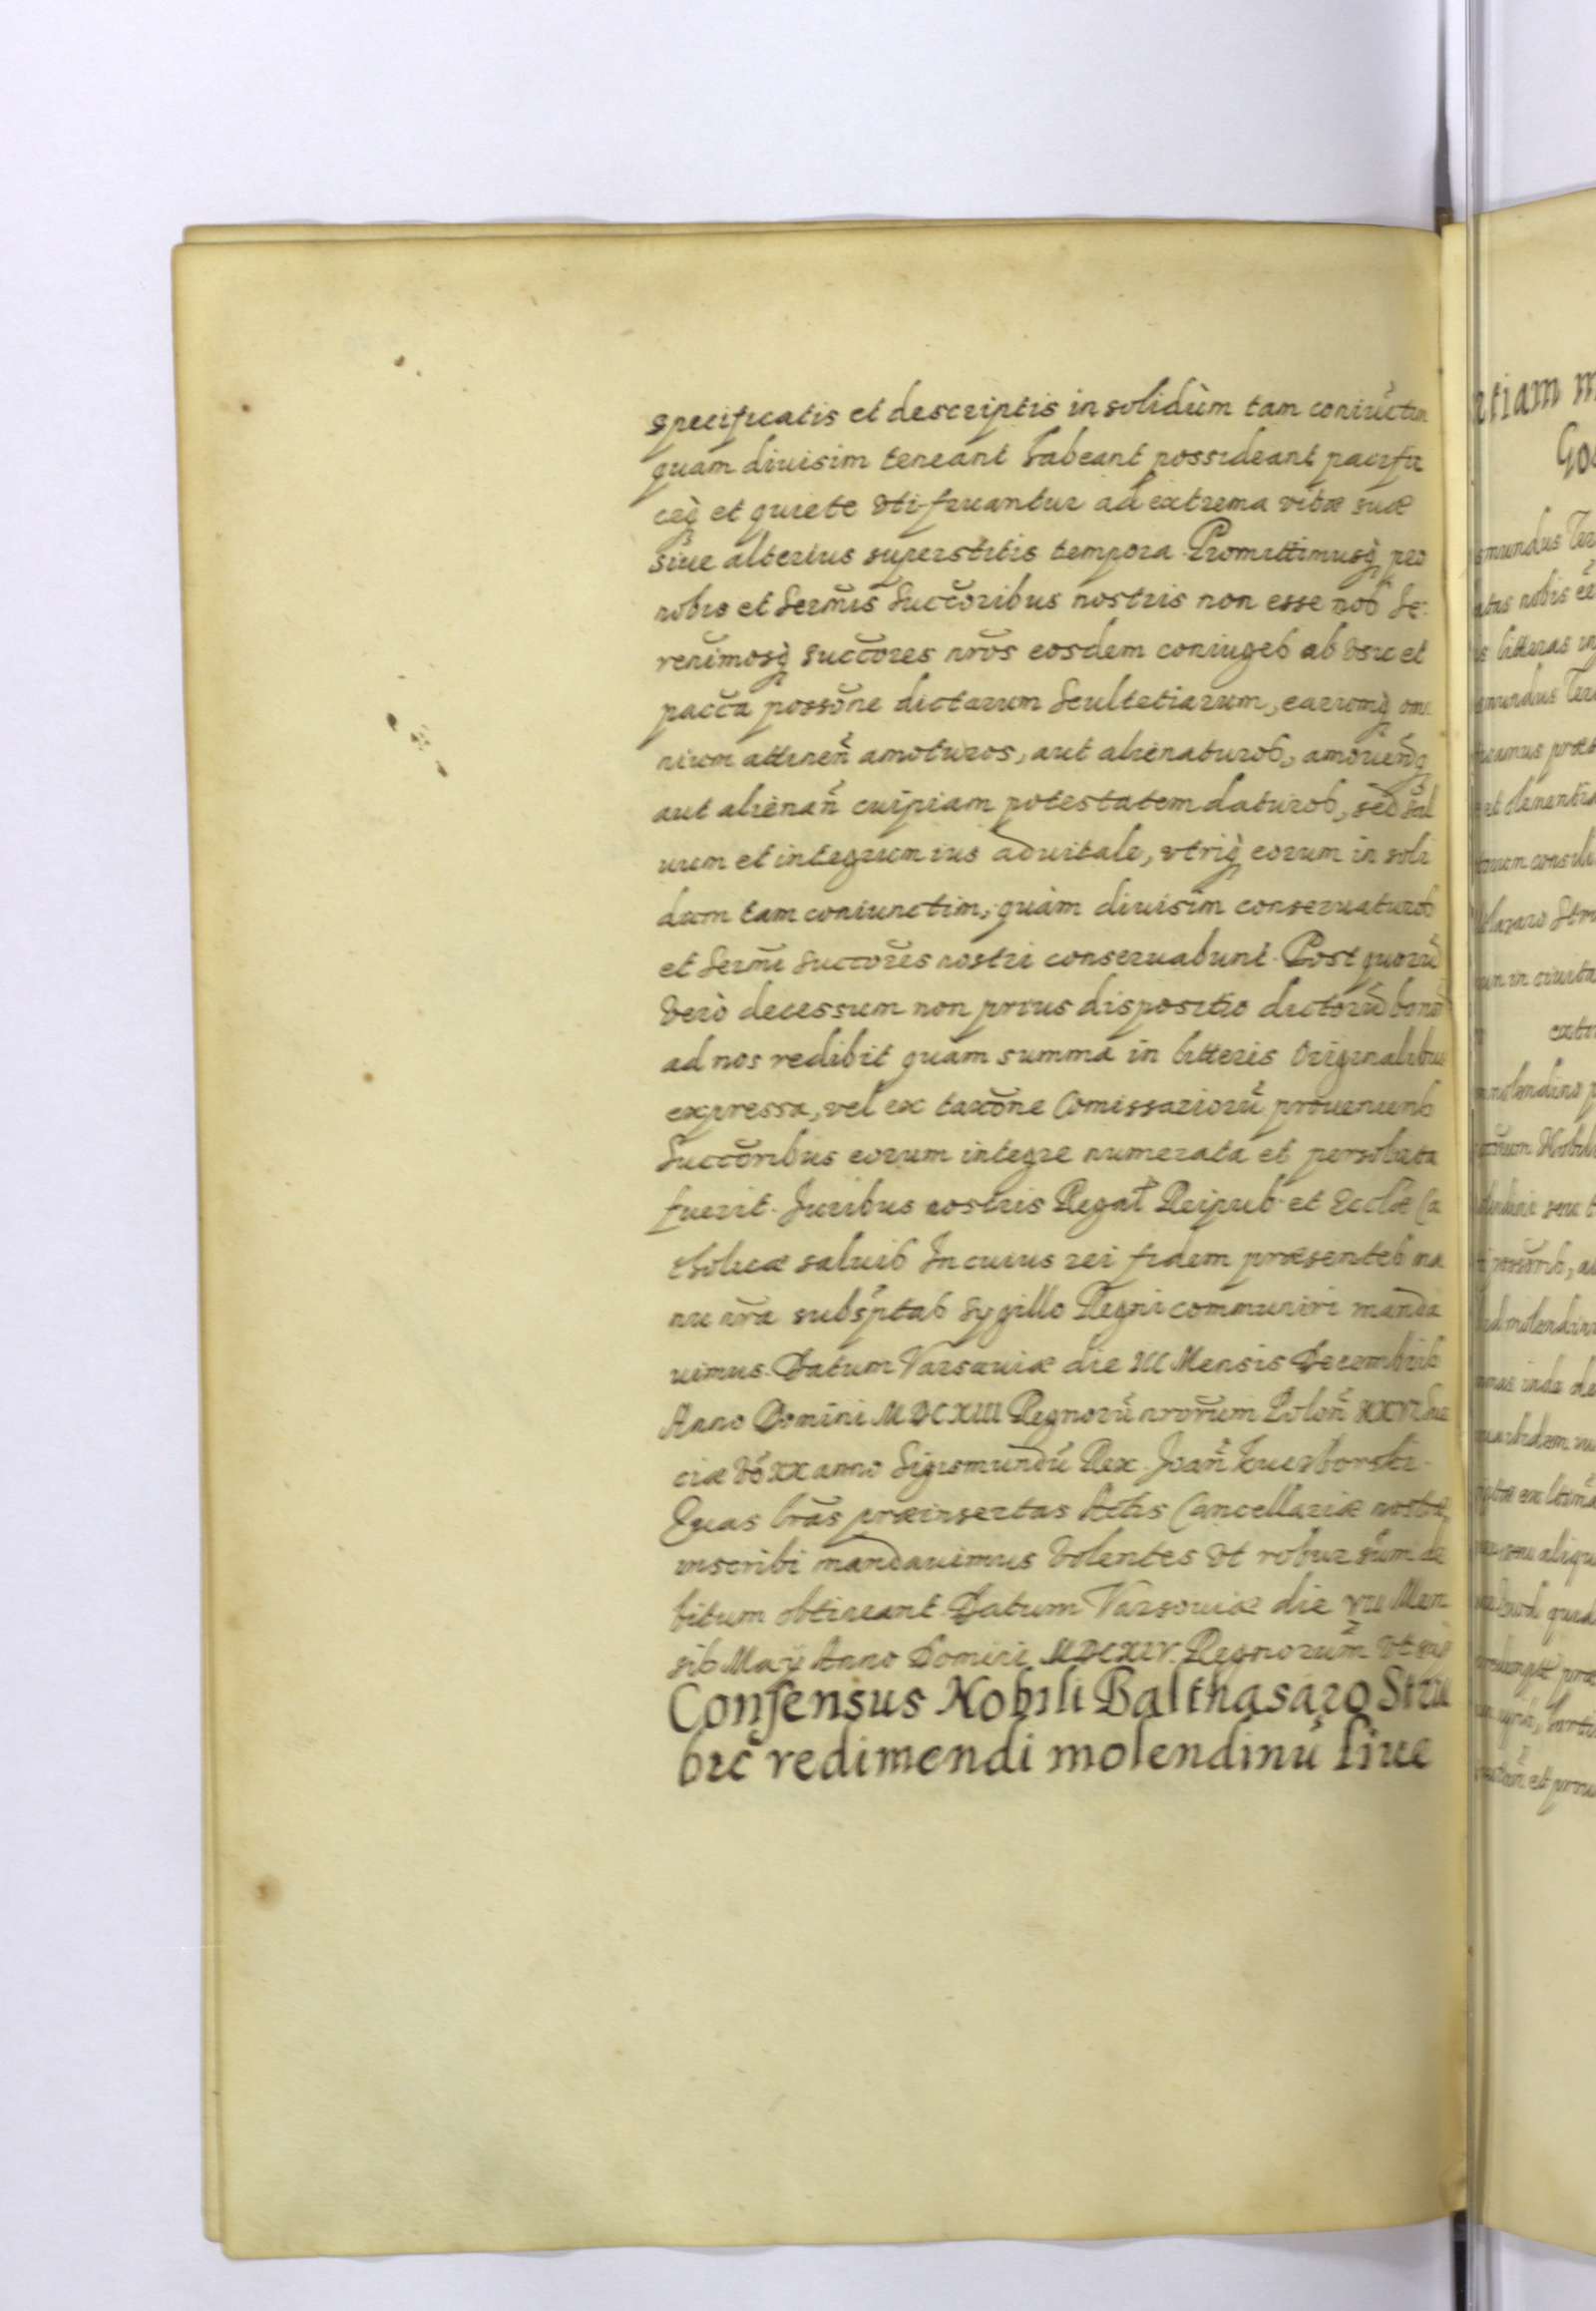 specificatis et descriptis in solidùm tam coniũctim
quam diuisim teneant habeant possideant pacifi
ceq̀ et quiete vti-fruantur ad extrema vitæ suæ
siue alterius superstitis tempora. Promittimusq̀ pro
nobis et Serm̃is Succ̃oribus nostris non esse nos Se:
renimosq̀ succ̃ores nr̃os eosdem coniuges ab vsu et
pacc̃a posso͂ne dictarum Scultetiarum, earumq̀ om
nium attinen̄ amoturos, aut alienaturos, amouendq
aut alienan̄ cuipiam potestatem daturos, sed sal
uum et integrum ius aduitale, vtriq̀ eorum in soli
dum tam coniunctim, quàm diuisim conseruaturos
et Serm̃i Succores nostri conseruabunt. Post quorũ
verò decessum non prius dispositio dictorũ bonorũ
ad nos redibit quam summa in litteris Originalibus
expressa, vel ex taxo͂ne Comissariorũ proueniens
Succ̃oribus eorum integre numerata et persoluta
fuerit. Juribus nostris Regal̃ Reipub. et Eccl̃æ Ca
tholicæ saluis In cuius rei fidem præsentes ma
nu nr̃a subs̃ptas sygillo Regni communiri manda
uimus. Datum Varsauiæ die III Mensis Decembris
Anno Domini MDCXIII Regnorũ nrorum Polon̄ XXVI Sue
ciæ vo͂ XX anno Sigismundũ Rex. Joan̄ Kuczborski.
Quas lr̃as præinsertas Actis Cancellariæ nostræ
inscribi mandauimus volentes vt robur sũum de
bitum obtineant. Datum Varsouiæ die VII Men
sis Maÿ Anno Domini MDCXIV. Regnorum̃ vt sup
Consensus Nobili Balthasaro Stru
bic̃ redimendi molendinũ siue